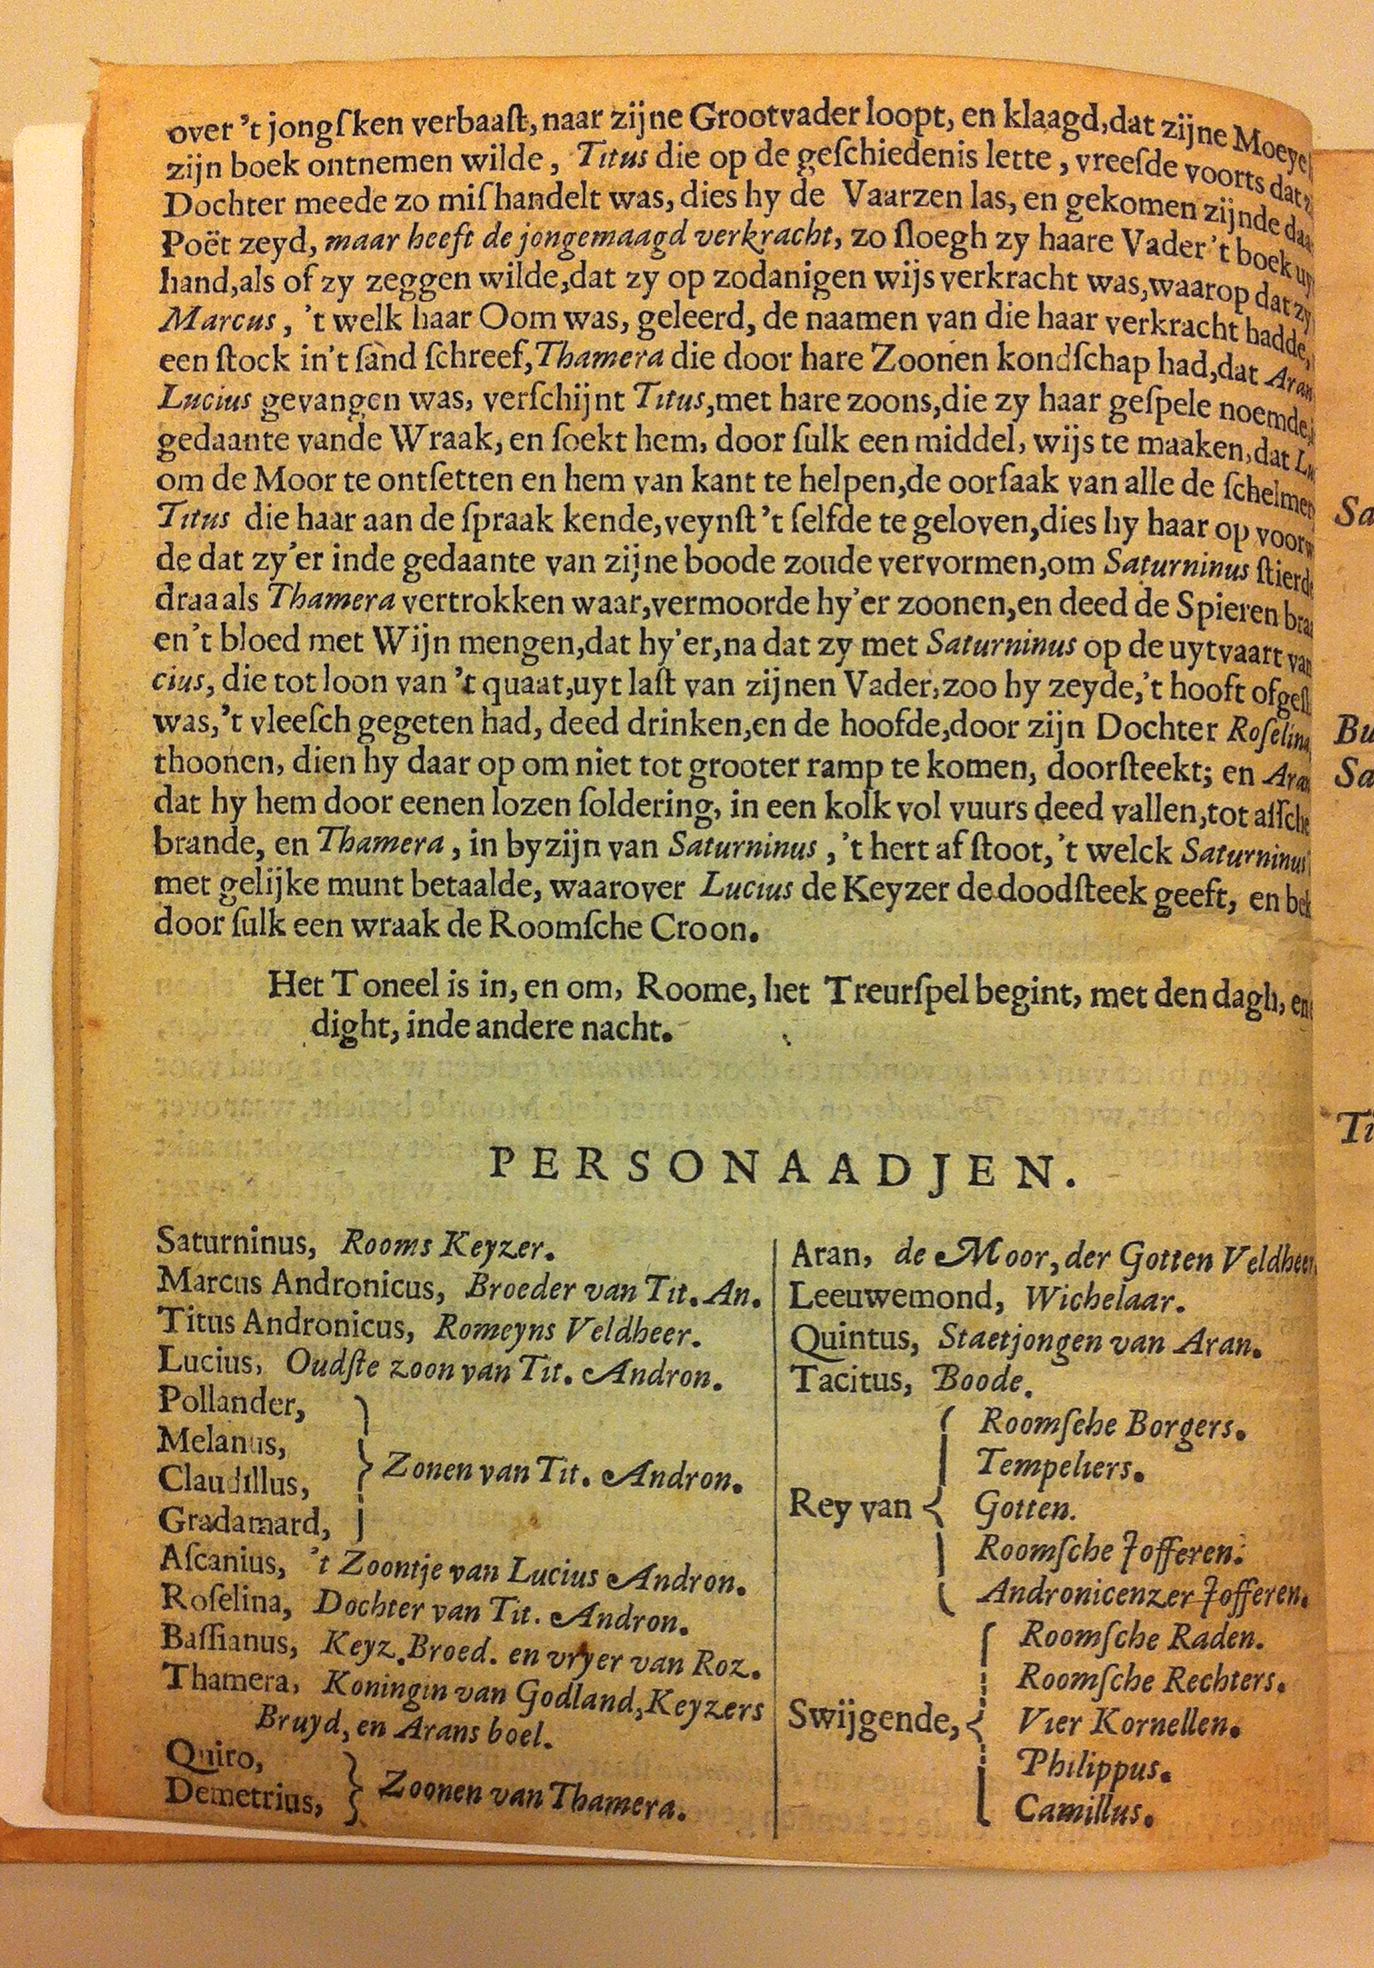 over 't jongſken verbaaſt, naar zijne Grootvader loopt, en klaagd, dat zijne Moeye
zijn boek ontnemen wilde, Titus die op de geſchiedenis lette, vreeſde voorts dat
Dochter meede zo miſhandelt was, dies hy de Vaarzen las, en gekomen zijnde
Poët zeyd, maar heeft de jongemaagd verkracht, zo ſloegh zy haare Vader 't boek
hand, als of zy zeggen wilde, dat zy op zodanigen wijs verkracht was, waarop dat zy
Marcus, 't welk haar Oom was, geleerd, de naamen van die haar verkracht hadde,
een ſtock in't ſand ſchreef, Thamera die door hare Zoonen kondſchap had, dat Aran
Lucius gevangen was, verſchijnt Titus, met hare zoons, die zy haar geſpele noemde,
gedaante vande Wraak, en ſoekt hem, door ſulk een middel, wijs te maaken, dat
om de Moor te ontſetten en hem van kant te helpen, de oorſaak van alle de ſchelmen
Titus die haar aan de ſpraak kende, veynſt 't ſelfde te geloven, dies hy haar op
de dat zy'er inde gedaante van zijne boode zoude vervormen, om Saturninus ſtierde
draa als Thamera vertrokken waar, vermoorde hy'er zoonen, en deed de Spieren
en't bloed met Wijn mengen, dat hy'er, na dat zy met Saturninus op de uytvaart van
cius, die tot loon van 't quaat, uyt laſt van zijnen Vader, zoo hy zeyde, 't hooft
was, 't vleeſch gegeten had, deed drinken, en de hoofde, door zijn Dochter Roſelina
thoonen, dien hy daar op om niet tot grooter ramp te komen, doorſteekt; en Aran
dat hy hem door eenen lozen ſoldering, in een kolk vol vuurs deed vallen, tot aſſche
brande, en Thamera, in byzijn van Saturninus, 't hert af ſtoot, 't welck Saturninus
met gelijke munt betaalde, waarover Lucius de Keyzer de doodſteek geeft, en
door ſulk een wraak de Roomſche Croon.
Het Toneel is in, en om, Roome, het Treurſpel begint, met den dagh, en
dight, inde andere nacht.
PERSONAADJEN.
Saturninus, Rooms Keyzer.
Marcus Andronicus, Broeder van Tit. An.
Titus Andronicus, Romeyns Veldheer.
Lucius, Oudſte zoon van Tit. Andron.
Pollander,
Melanus,
Claudillus,
Gradamard,
Zonen van Tit. Andron.
Aſcanius, 't Zoontje van Lucius Andron.
Roſelina, Dochter van Tit. Andron.
Baſſianus, Keyz. Broed. en vryer van Roz.
Thamera, Koningin van Godland, Keyzers
Bruyd, en Arans boel.
Quiro,
Demetrius,
Zoonen van Thamera.
Aran, de Moor, der Gotten Veldheer
Leeuwemond, Wichelaar.
Quintus, Staetjongen van Aran.
Tacitus, Boode.
Rey van
Roomſche Borgers.
Tempeliers.
Gotten.
Roomſche Jofferen.
Andronicenzer Jofferen.
Swijgende,
Roomſche Raden.
Roomſche Rechters.
Vier Kornellen.
Philippus.
Camillus.
Sa
Bu
Sa
Ti